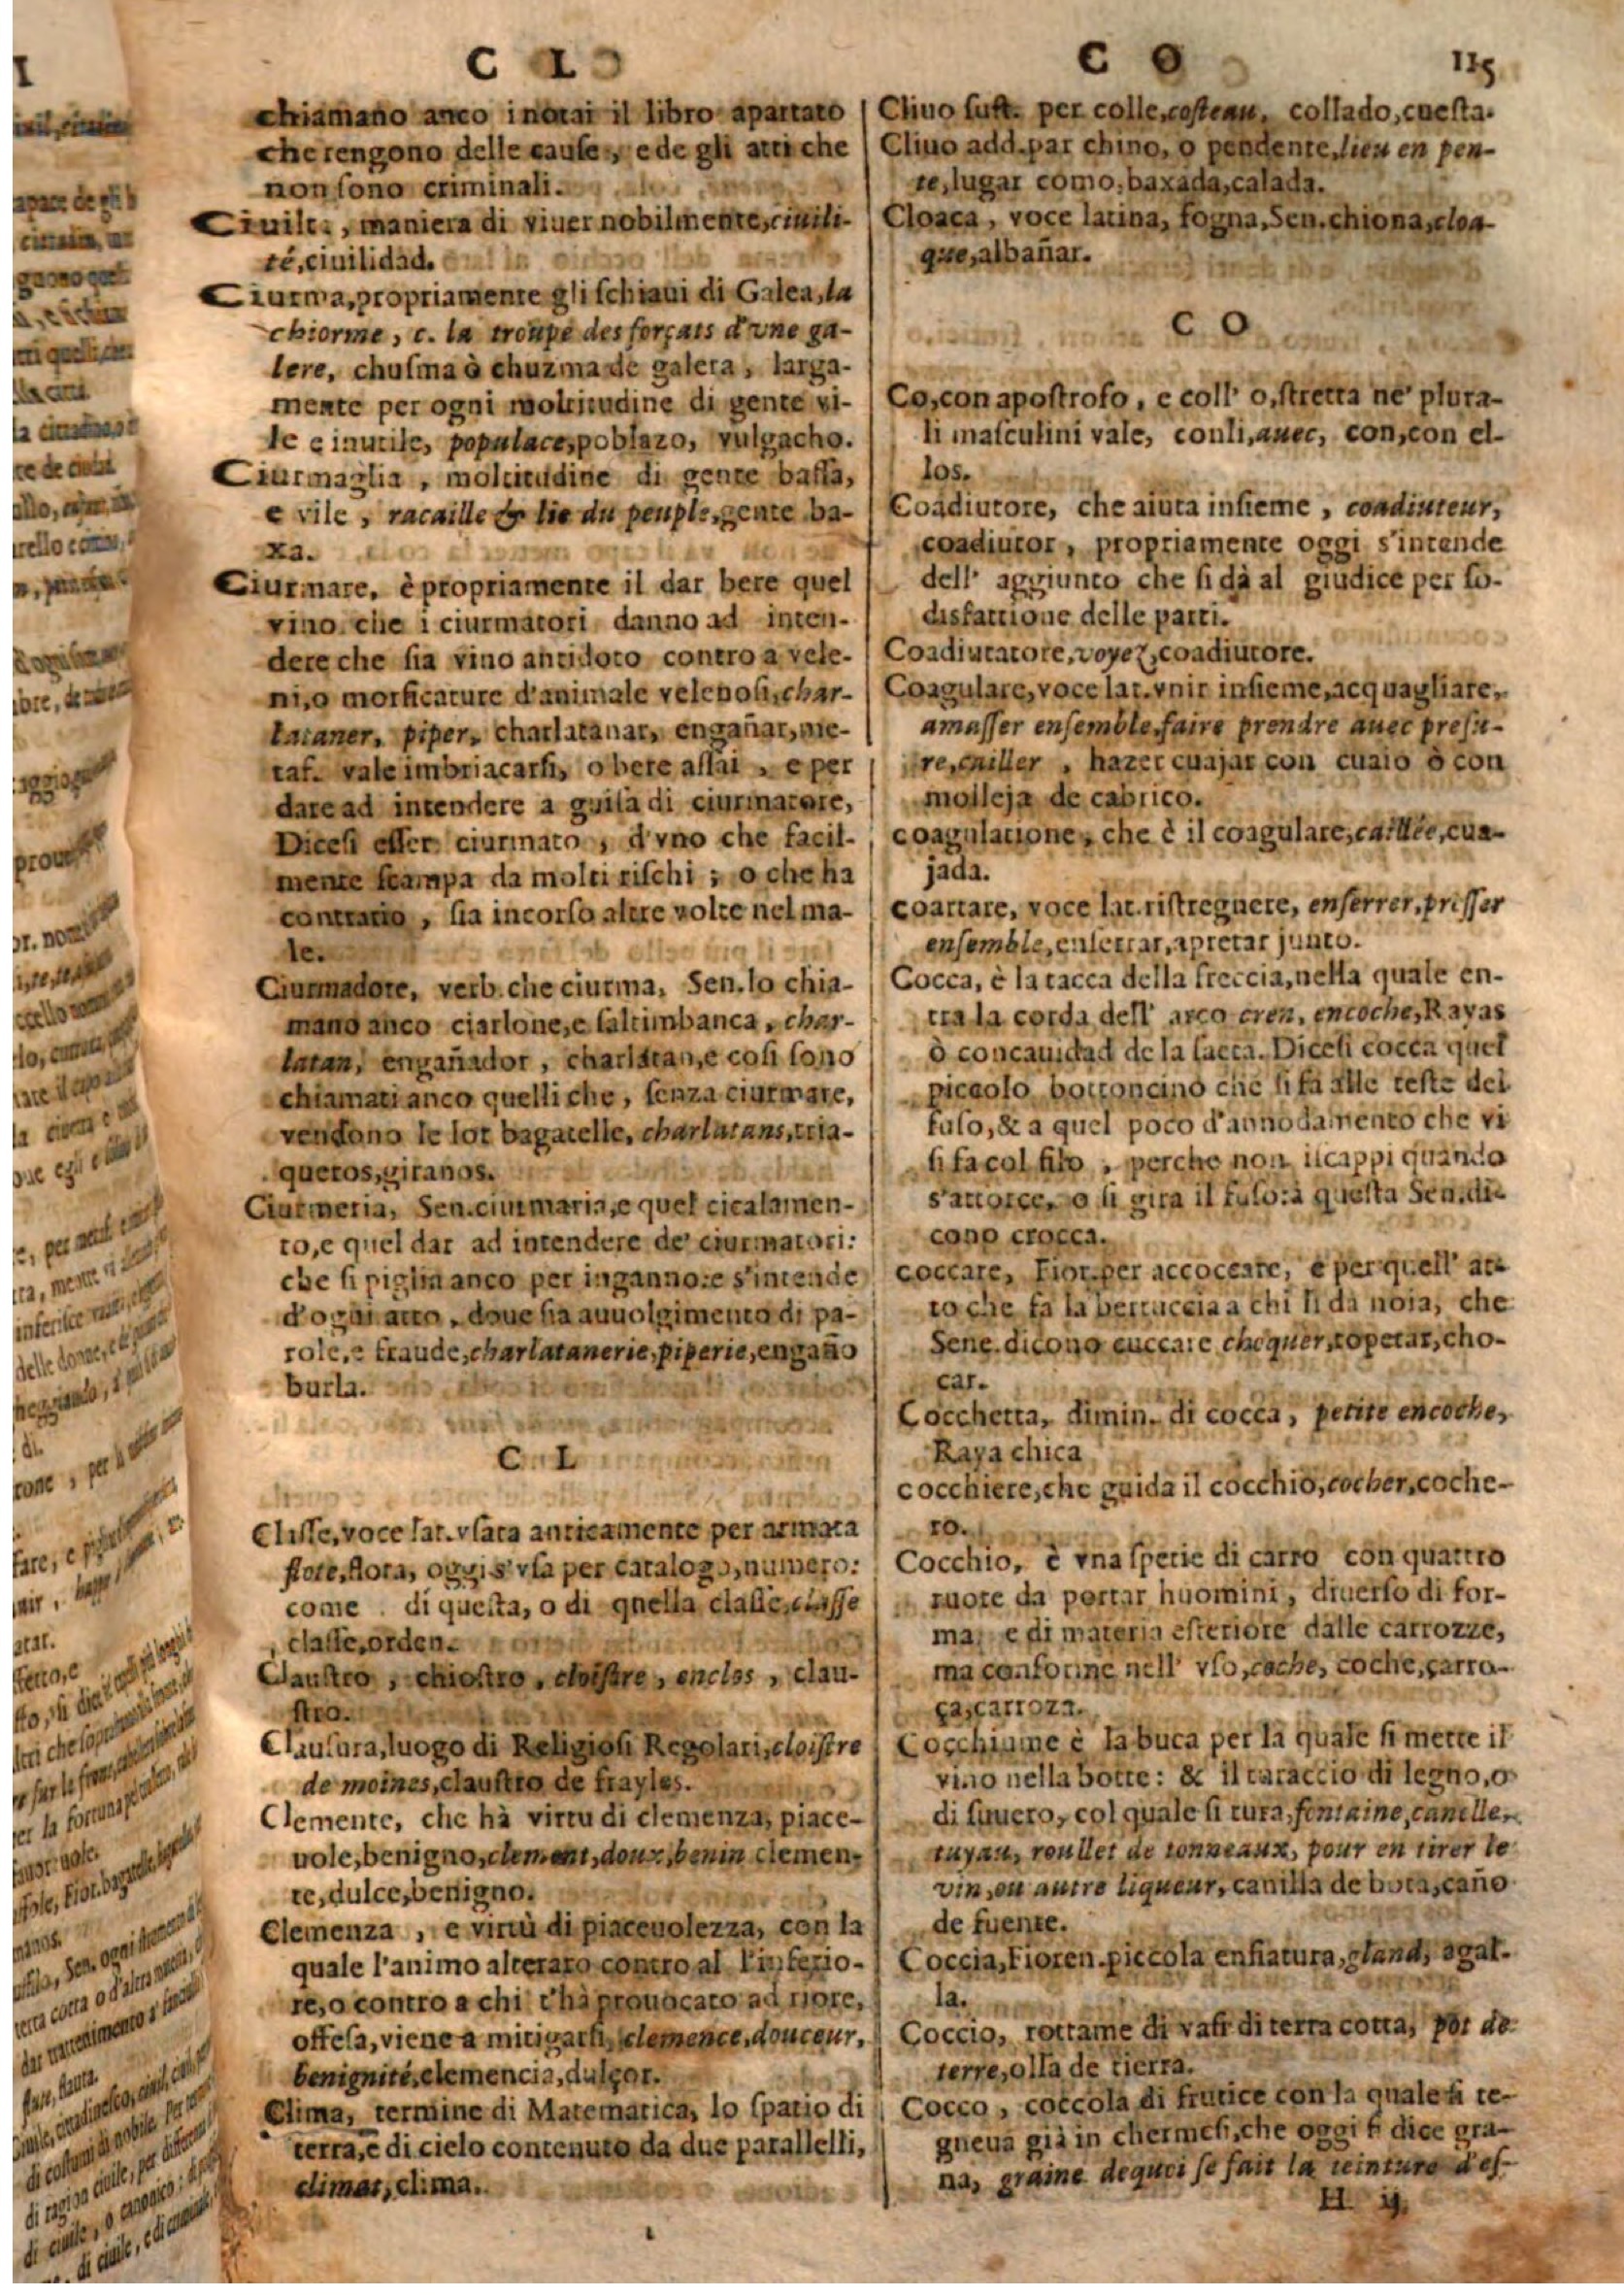 C L
C O
115
chiamano anco i notai il libro apartato
che tengono delle cause, e de gli atti che
non ſono criminali.
Ciuiltà, maniera di viuer nobilmente, ciuili-
té, ciuilidad.
Ciurma, propriamente gli ſchiaui di Galea, la
chiorme, c. la troupe des forçats d'vne ga-
lere, chuſma ò chuzma de galera, larga-
mente per ogni moltitudine di gente vi-
le e inutile, populace, poblazo, vulgacho.
Ciurmaglia, moltitudine di gente baſſa,
e vile, racaille & lie du peuple, gente ba-
xa.
Ciurmare, è propriamente il dar bere quel
vino che i ciurmatori danno ad inten-
dere che ſia vino antidoto contro a vele-
ni, o morſicature d'animale velenoſi, char-
lataner, piper, charlatanar, engañar, me-
taf. vale imbriacarſi, o bere aſſai, e per
dare ad intendere a guiſa di ciurmatore,
Diceſi eſſer ciurmato, d'vno che facil-
mente ſcampa da molti riſchi; o che ha
contratio, ſia incorſo altre volte nel ma-
le.
Ciurmadore, verb. che ciurma, Sen. lo chia-
mano anco ciarlone, e ſaltimbanca, char-
latan, engañador, charlatan, e coſi ſono
chiamati anco quelli che, ſenza ciurmare,
vendono le lor bagatelle, charlatans, tria-
queros, giranos.
Ciurmeria, Sen. ciurmaria, e quel cicalamen-
to, e quel dar ad intendere de' ciurmatori:
che ſi piglia anco per inganno: e s'intende
d'ogni atto, doue ſia auuolgimento di pa-
role, e fraude, charlatanerie, piperie, engaño
burla.
C L
Claſſe, voce lat. vſata anticamente per armata
flote, flota, oggi s'vſa per catalogo, numero:
come di queſta, o di qnella claſſe, claſſe
claſſe, orden.
Clauſtro, chioſtro, cloiſtre, enclos, clau-
ſtro.
Clauſura, luogo di Religioſi Regolari, cloiſtre
de moines, clauſtro de frayles.
Clemente, che hà virtu di clemenza, piace-
uole, benigno, clement, doux, benin clemen-
te, dulce, benigno.
Clemenza, e virtù di piaceuolezza, con la
quale l'animo alterato contro al l'inferio-
re, o contro a chi t'hà prouocato ad riore,
offeſa, viene a mitigarſi, clemence, douceur,
benignité, clemencia, dulçor.
Clima, termine di Matematica, lo ſpatio di
terra, e di cielo contenuto da due parallelli,
climat, clima.
Cliuo ſuſt. per colle, coſteau, collado, cueſta.
Cliuo add. par chino, o pendente, lieu en pen-
te, lugar como, baxada, calada.
Cloaca, voce latina, fogna, Sen. chiona, cloa-
que, albañar.
C O
Co, con apoſtrofo, e coll' o, ſtretta ne' plura-
li maſculini vale, conli, auec, con, con el-
los.
Coadiutore, che aiuta inſieme, coadiuteur,
coadiutor, propriamente oggi s'intende
dell' aggiunto che ſi dà al giudice per ſo-
disfattione delle parti.
Coadiutatore, voyez, coadiutore.
Coagulare, voce lat. vnir inſieme, acquagliare,
amaſſer enſemble, faire prendre auec preſu-
re, cailler, hazer cuajar con cuaio ò con
molleja de cabrico.
coagulatione, che è il coagulare, caillée, cua-
jada.
coartare, voce lat. riſtregnere, enſerrer, preſſer
enſemble, enſerrar, apretar junto.
Cocca, è la tacca della freccia, nella quale en-
tra la corda dell' arco cren, encoche, Rayas
ò concauidad de la ſaeta. Diceſi cocca quel
piccolo bottoncino che ſi fa alle teſte del
fuſo, & a quel poco d'annodamento che vi
ſi fa col filo, perche non iſcappi quando
s'attorce, o ſi gira il fuſo: a queſta Sen. di-
cono crocca.
coccare, Fior. per accoccare, e per quell' at-
to che fa la bertuccia a chi li da noia, che
Sene. dicono cuccare choquer, topetar, cho-
car.
Cocchetta, dimin. di cocca, petite encoche,
Raya chica
cocchiere, che guida il cocchio, cocher, coche-
ro.
Cocchio, è vna ſpetie di carro con quattro
ruote da portar huomini, diuerſo di for-
ma, e di materia eſteriore dalle carrozze,
ma conforme nell' vſo, coche, coche, carro-
ça, carroza.
Cocchiume è la buca per la quale ſi mette il
vino nella botte: & il turaccio di legno, o
di ſuuero, col quale ſi tura, fontaine, canelle,
tuyau, roullet de tonneaux, pour en tirer le
vin, ou autre liqueur, canilla de bota, caño
de fuente.
Coccia, Fioren. piccola enfiatura, gland, agal-
la.
Coccio, rottame di vaſi di terra cotta, pot de
terre, olla de tierra.
Cocco, coccola di frutice con la quale ſi te-
gneua già in chermeſi, che oggi ſi dice gra-
na, graine dequoi ſe fait la teinture d'eſ-
H ij